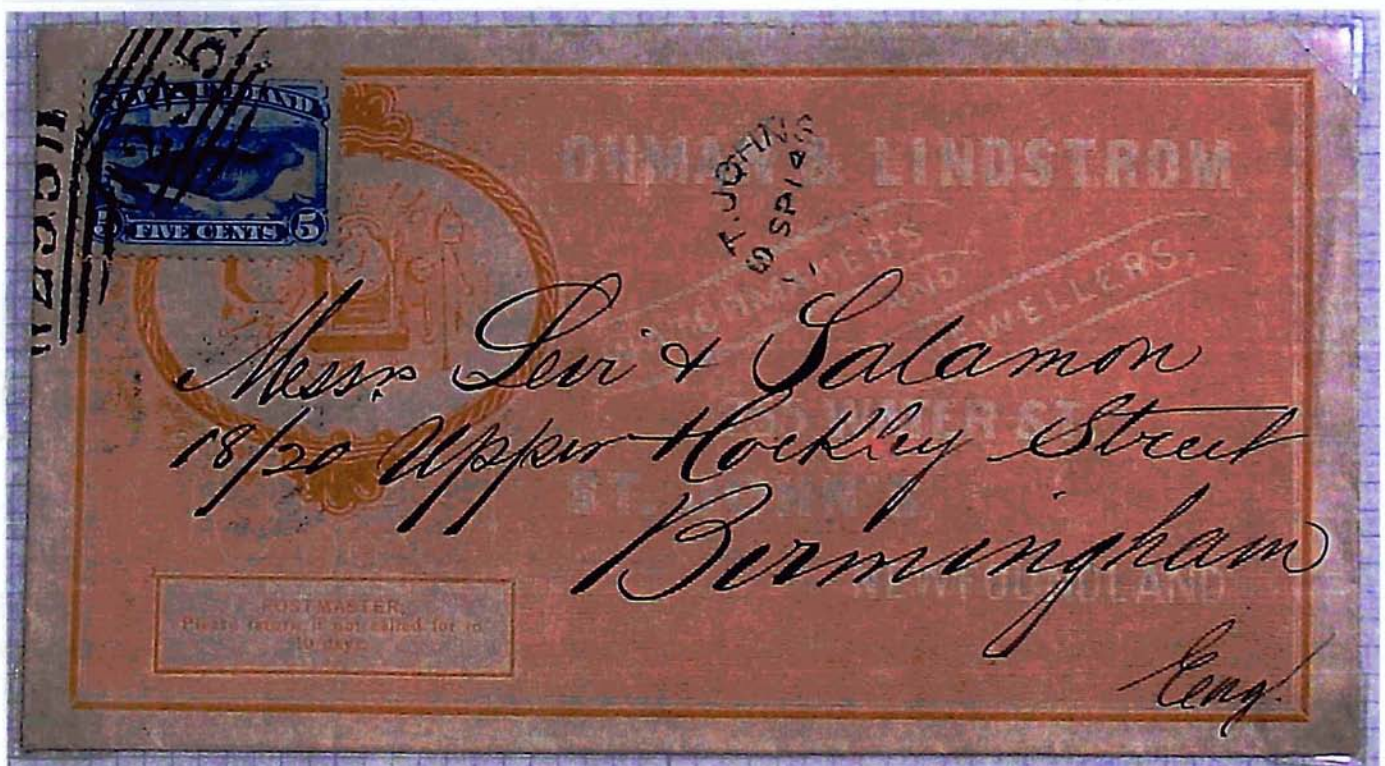 NEWFOUNDLAND
5 FIVE CENTS 5
ST. JOHN'S
SP 14
OHMAN & LINDSTROM
WATCHMAKERS
AND
JEWELLERS,
WATER ST.
ST. JOHN'S
NEWFOUNDLAND
Messrs Levi & Salamon
18/20 Upper Hockley Street
Birmingham
Eng.
POSTMASTER,
Please return if not called for in
10 days.